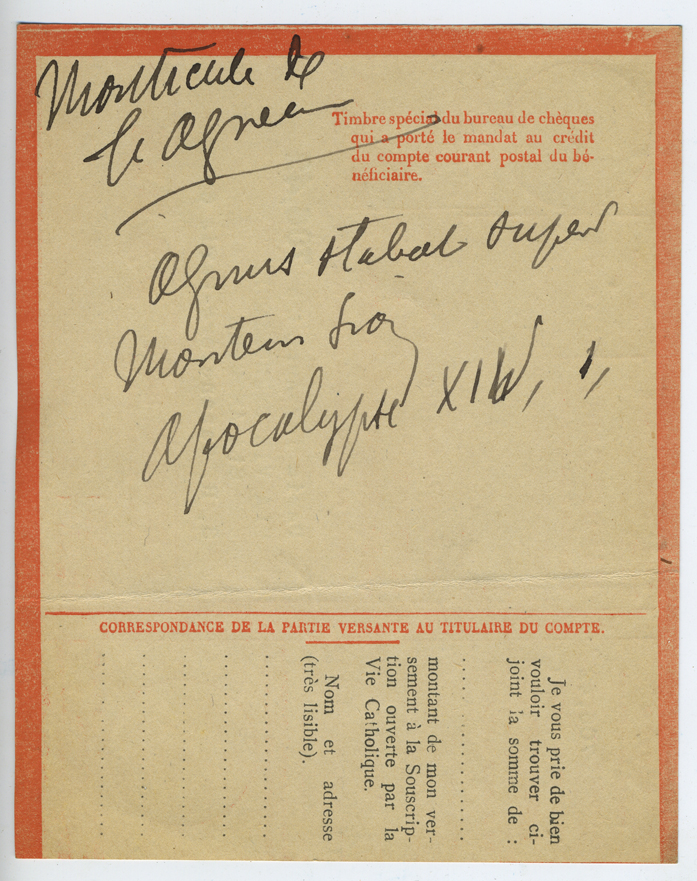 Monticule de
l'Agneau
Timbre spécial du bureau de chèques
qui a porté le mandat au crédit
du compte courant postal du bé-
néficiaire.
Agnus stabat super
Montem Sion
Apocalypse XIV, 1,
CORRESPONDANCE DE LA PARTIE VERSANTE AU TITULAIRE DU COMPTE.
Je vous prie de bien
vouloir trouver ci-
joint la somme de :
montant de mon ver-
sement à la Souscrip-
tion ouverte par la
Vie Catholique.
Nom et adresse
(très lisible).